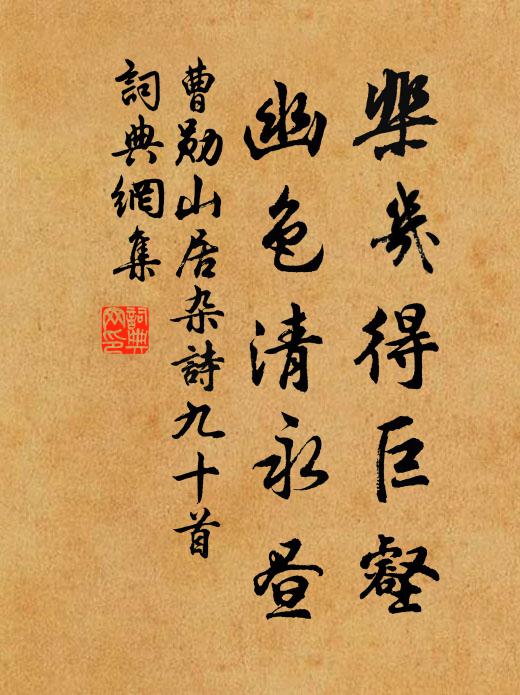 棐幾得巨壑
幽色清永昼
曹勋山居杂詩九十首
詞典網集
詞典网印